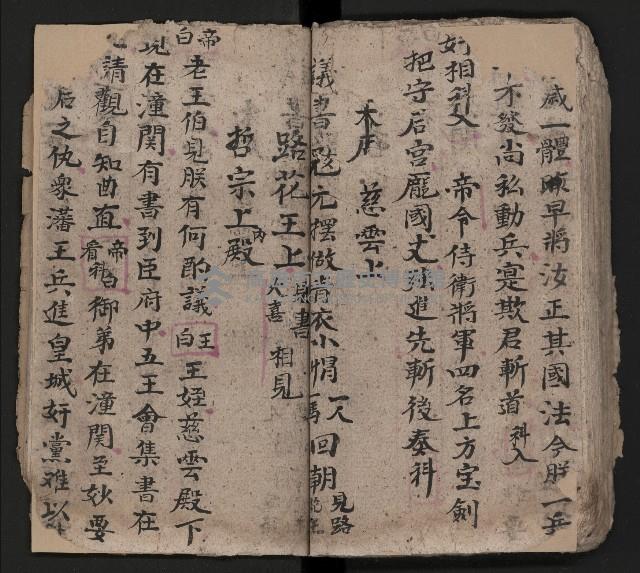 咸一體暕早將汝正其國法今朕一兵
不發尚私動兵寔欺君斬道 科入
奸相科入 帝令侍衛將軍四名上方宝劍
把守后宮龐國丈 進先斬後奏科
木戶 慈雲上
議書 冠元擺做 衣小帽 一人 回朝 見路
路花王上 見書 大喜 相見
哲宗上内殿
帝白 老王伯見朕有何酌議 王白 王姪慈雲殿下
現在潼関有書到臣府中五王會集書在
請觀自知曲直 帝看科白 御弟在潼関至 要
后之仇眾藩王兵進皇城奸黨难以